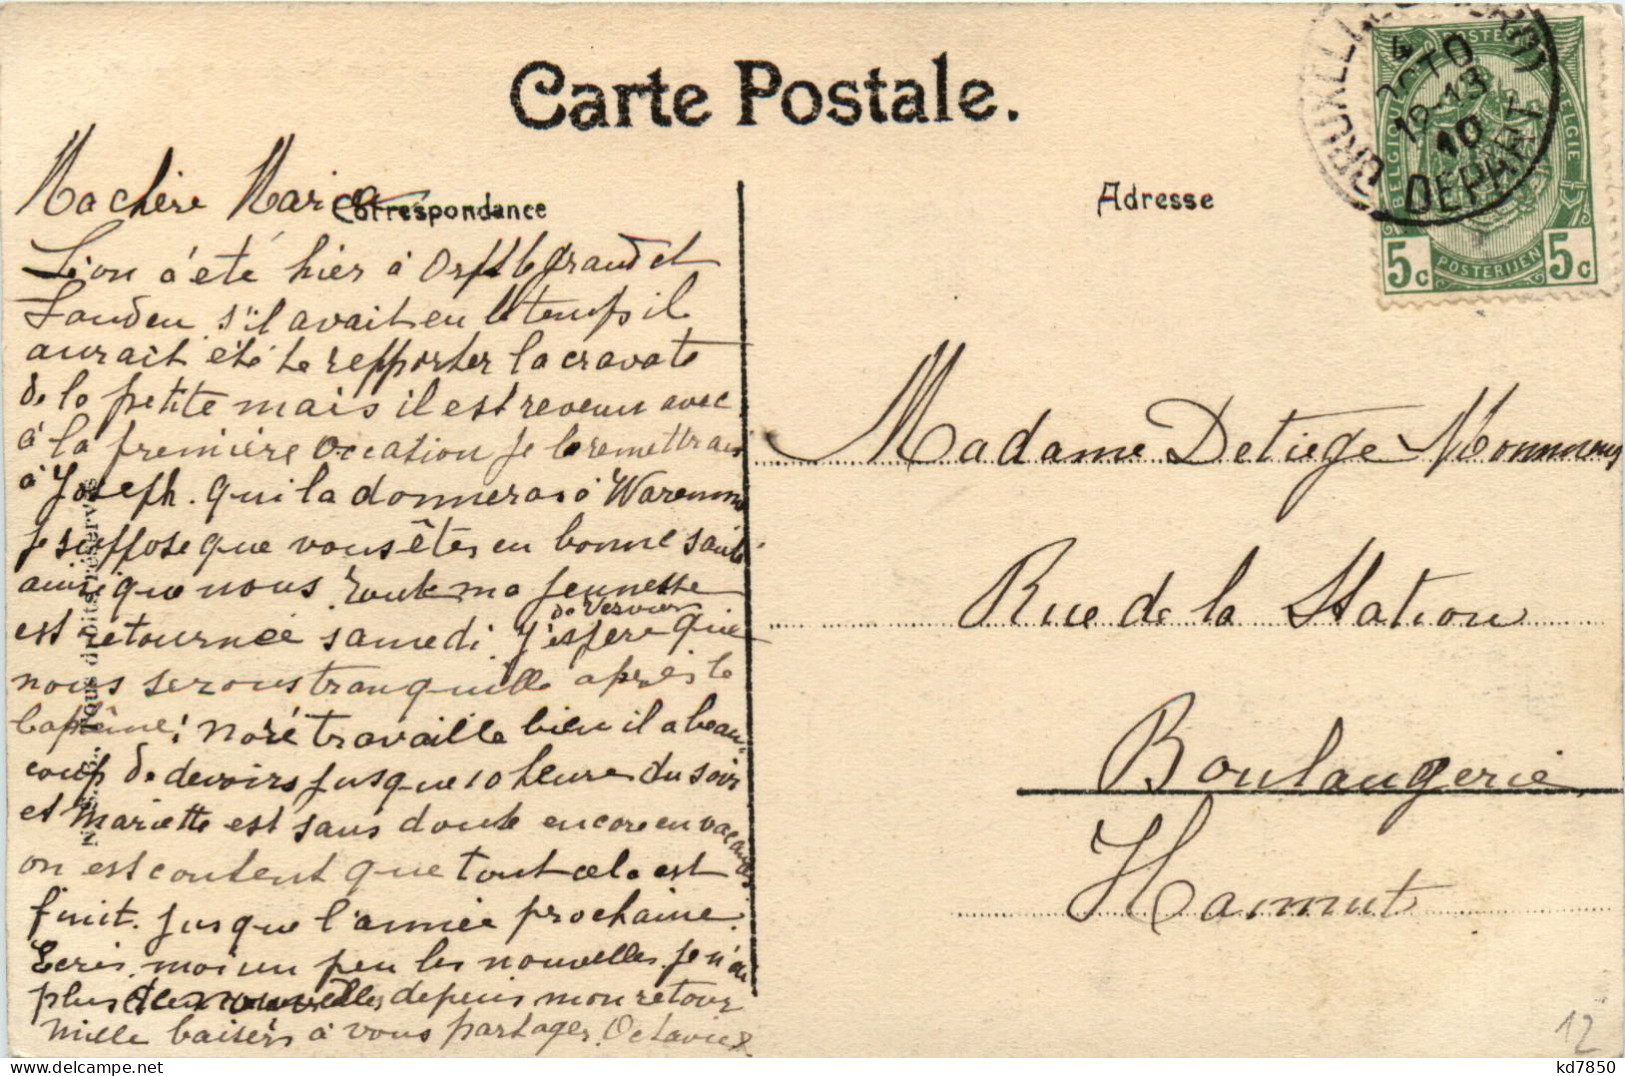 Carte Postale.
Correspondance
Adresse
BRUXELLES
4 OCTO
18-13
10
DEPART
POSTES
BELGIQUE
BELGIE
5c
POSTERIJEN
5c
Ma chère Maria
Léon a été hier à Orp le grand et
Landen s'il avait eu le temps il
aurait été te repporter la cravate
de la petite mais il est revenu avec
à la première occation je la remettrais
à Joseph. qui la donneras à Waremme
je suppose que vous êtes en bonne santé
ainsi que nous. Toute ma jeunesse
de Vervier
est retournée samedi. J'espère que
nous serons tranquille après le
baptême; Noré travaille bien il a beau-
coup de devoirs jusque 10 heure du soir
et Mariette est sans doute encore en vacances
on est content que tout cela est
finit. jusque l'année prochaine.
Ecris moi un peu les nouvelles je n'ai
plus des nouvelles depuis mon retour
mille baisers à vous partager. Octavie
Tous droits réservés
Madame Detiège Monnoms
Rue de la Station
Boulangerie
Hannut
12
kd7850